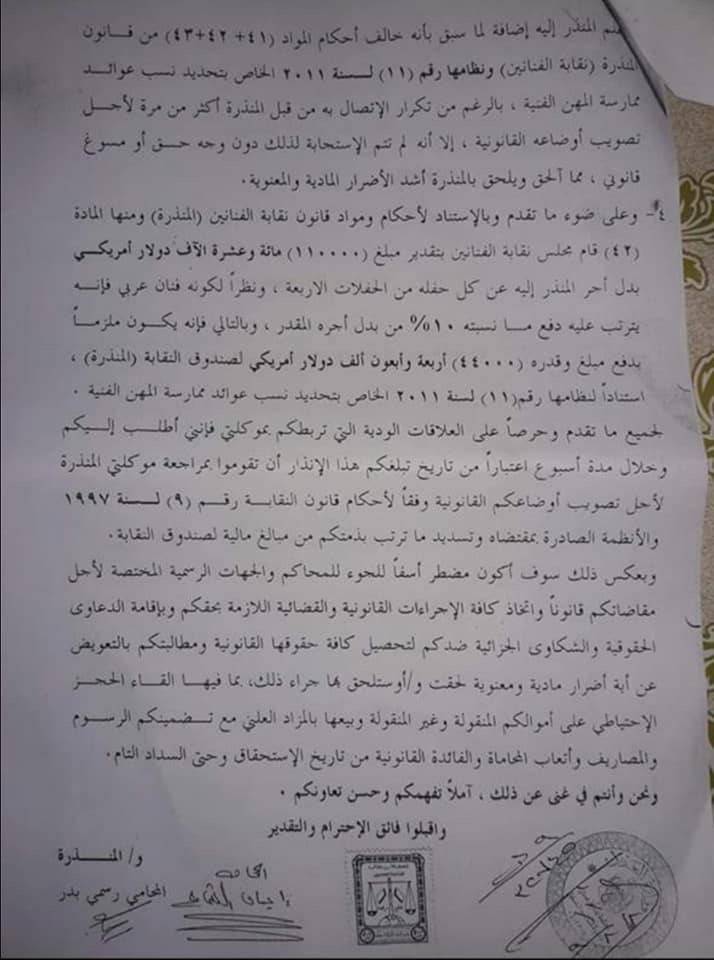 المنذر إليه إضافة لما سبق بأنه خالف أحكام المواد (٤١+ ٤٢+٤٣) من قانون
المنذرة (نقابة الفنانين) ونظامها رقم (١١) لسنة ٢٠١١ الخاص بتحديد نسب عوائد
ممارسة المهن الفنية ، بالرغم من تكرار الإتصال به من قبل المنذرة أكثر من مرة لأجل
تصويب أوضاعه القانونية ، إلا أنه لم تتم الإستجابة لذلك دون وجه حق أو مسوغ
قانوني ، مما ألحق ويلحق بالمنذرة أشد الأضرار المادية والمعنوية.
٤- وعلى ضوء ما تقدم وبالإستناد لأحكام ومواد قانون نقابة الفنانين (المنذرة) ومنها المادة
(٤٢) قام مجلس نقابة الفنانين بتقدير مبلغ (١١٠٠٠٠) مائة وعشرة الآف دولار أمريكي
بدل أجر المنذر إليه عن كل حفله من الحفلات الاربعة ، ونظراً لكونه فنان عربي فإنه
يترتب عليه دفع ما نسبته ١٠% من بدل أجره المقدر ، وبالتالي فإنه يكون ملزماً
بدفع مبلغ وقدره (٤٤٠٠٠) أربعة وأبعون ألف دولار أمريكي لصندوق النقابة (المنذرة) ،
استناداً لنظامها رقم(١١) لسنة ٢٠١١ الخاص بتحديد نسب عوائد ممارسة المهن الفنية .
لجميع ما تقدم وحرصاً على العلاقات الودية التي تربطكم بموكلتي فإنني أطلب إليكم
وخلال مدة أسبوع اعتباراً من تاريخ تبلغكم هذا الإنذار أن تقوموا بمراجعة موكلتي المنذرة
لأجل تصويب أوضاعكم القانونية وفقاً لأحكام قانون النقابة رقم (٩) لسنة ١٩٩٧
والأنظمة الصادرة بمقتضاه وتسديد ما ترتب بذمتكم من مبالغ مالية لصندوق النقابة.
وبعكس ذلك سوف أكون مضطر أسفاً للجوء للمحاكم والجهات الرسمية المختصة لأجل
مقاضاتكم قانوناً واتخاذ كافة الإجراءات القانونية والقضائية اللازمة بحقكم وبإقامة الدعاوى
الحقوقية والشكاوى الجزائية ضدكم لتحصيل كافة حقوقها القانونية ومطالبتكم بالتعويض
عن أية أضرار مادية ومعنوية لحقت و/أوستلحق بها جراء ذلك، بما فيها القاء الحجز
الإحتياطي على أموالكم المنقولة وغير المنقولة وبيعها بالمزاد العلني مع تضمينكم الرسوم
والمصاريف وأتعاب المحاماة والفائدة القانونية من تاريخ الإستحقاق وحتى السداد التام.
ونحن وأنتم في غنى عن ذلك ، آملاً تفهمكم وحسن تعاونكم .
واقبلوا فائق الإحترام والتقدير
و/ المنذرة
المحامي رسمي بدر